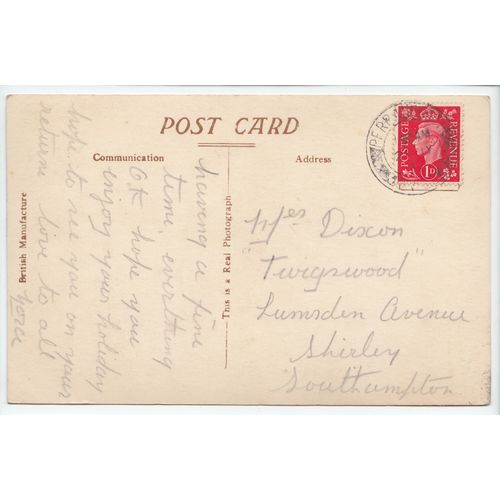 POST CARD
Communication
Address
British Manufacture
This is a Real Photograph
POSTAGE
REVENUE
1D
PERRA
having a fine
time, everything
O.K. hope you
enjoy your holiday
hope to see you on your
return love to all
Mrs Dixon
"Twigswood"
Lumsden Avenue
Shirley
Southampton